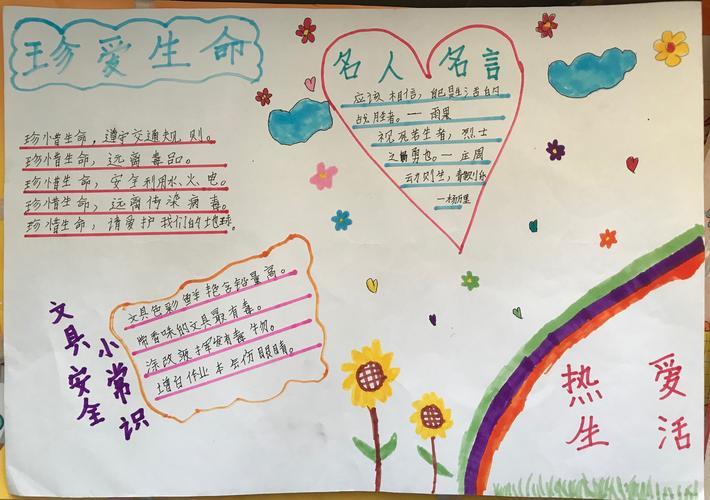 珍爱生命
珍惜生命，遵守交通规则。
珍惜生命，远离毒品。
珍惜生命，安全利用水、火、电。
珍惜生命，远离传染病毒。
珍惜生命，请爱护我们的地球。
名人名言
应该相信，能是生活的
战胜者。一雨果
视死若生者，烈士
之勇也。一庄周
动则生，静则乐
一杨万里
文具安全
小常识
文具色彩鲜艳含铅量高。
带香味的文具最有毒。
涂改液挥发有毒物。
增白作业本会伤眼睛。
热爱
生活